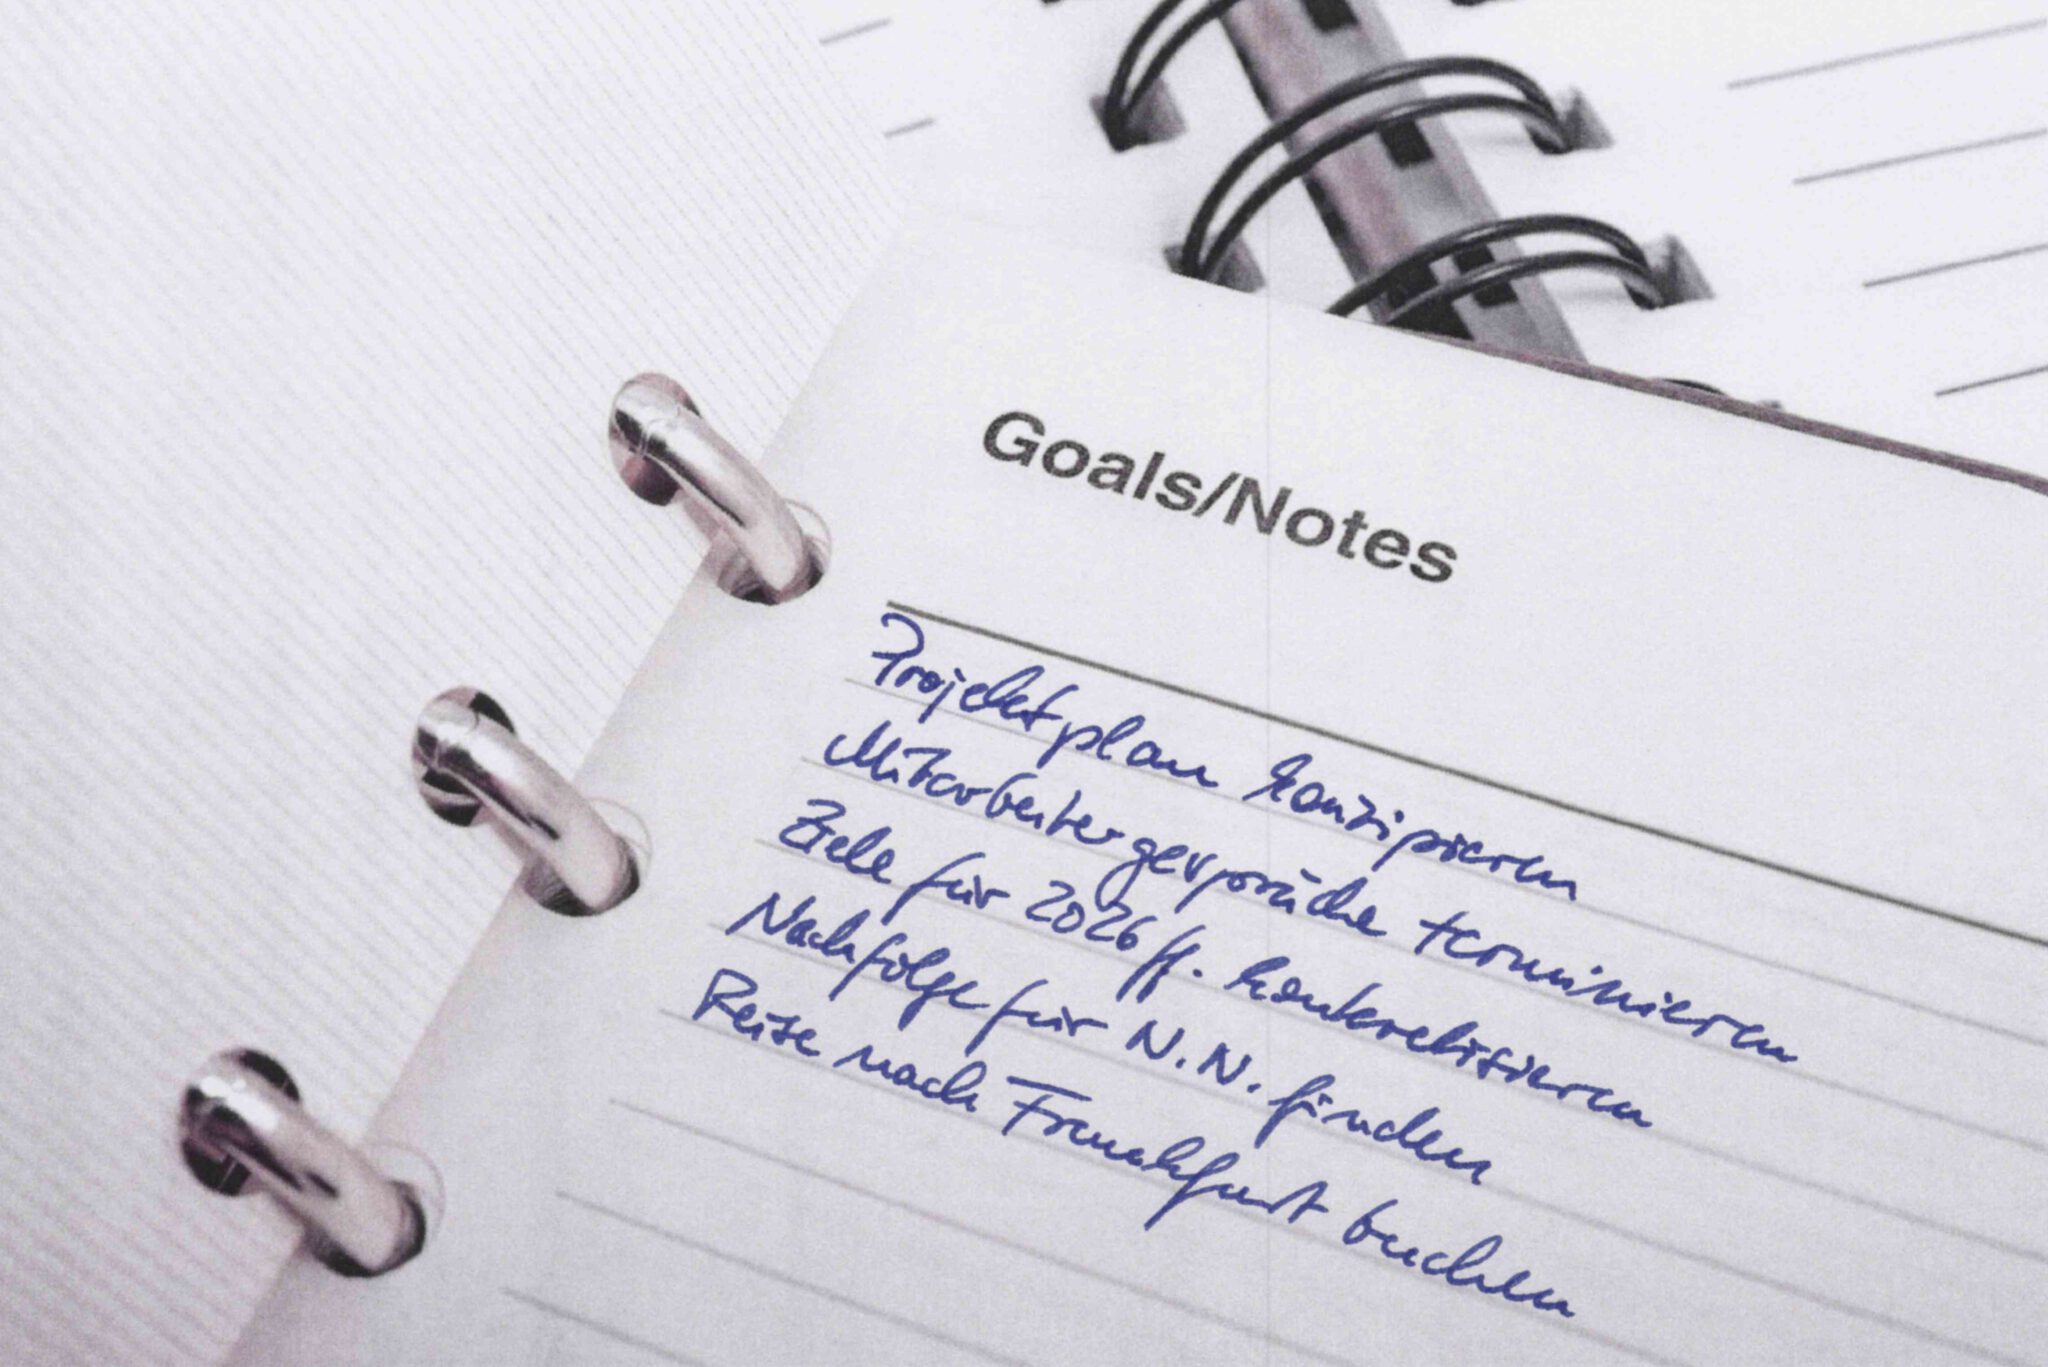 Goals/Notes
Projektplan konzipieren
Mitarbeitergespräche terminieren
Ziele für 2026 ff. konkretisieren
Nachfolge für N.N. finden
Reise nach Frankfurt buchen